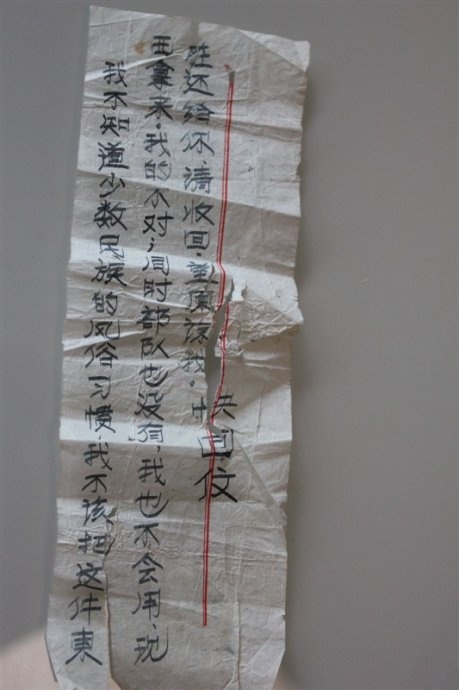 我不知道少数民族的风俗习惯,我不该把这件東
西拿来。我的不对,同时部队也没有,我也不会用,现
在还给你,请收回,望原谅我。